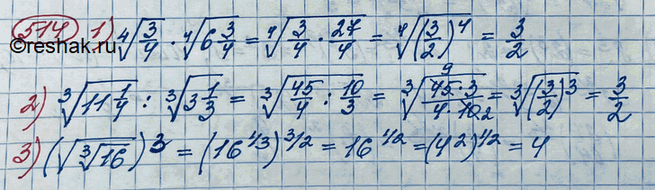 514 1) ⁴√(3/4) · ⁴√(6 3/4) = ⁴√(3/4 · 27/4) = ⁴√((3/2)⁴) = 3/2
©reshak.ru
2) ³√(11 1/4) : ³√(3 1/3) = ³√(45/4 : 10/3) = ³√(9 45·3/4·10 2) = ³√((3/2)³) = 3/2
3) (√(³√16))³ = (16^(1/3))^(3/2) = 16^(1/2) = (4²)^(1/2) = 4